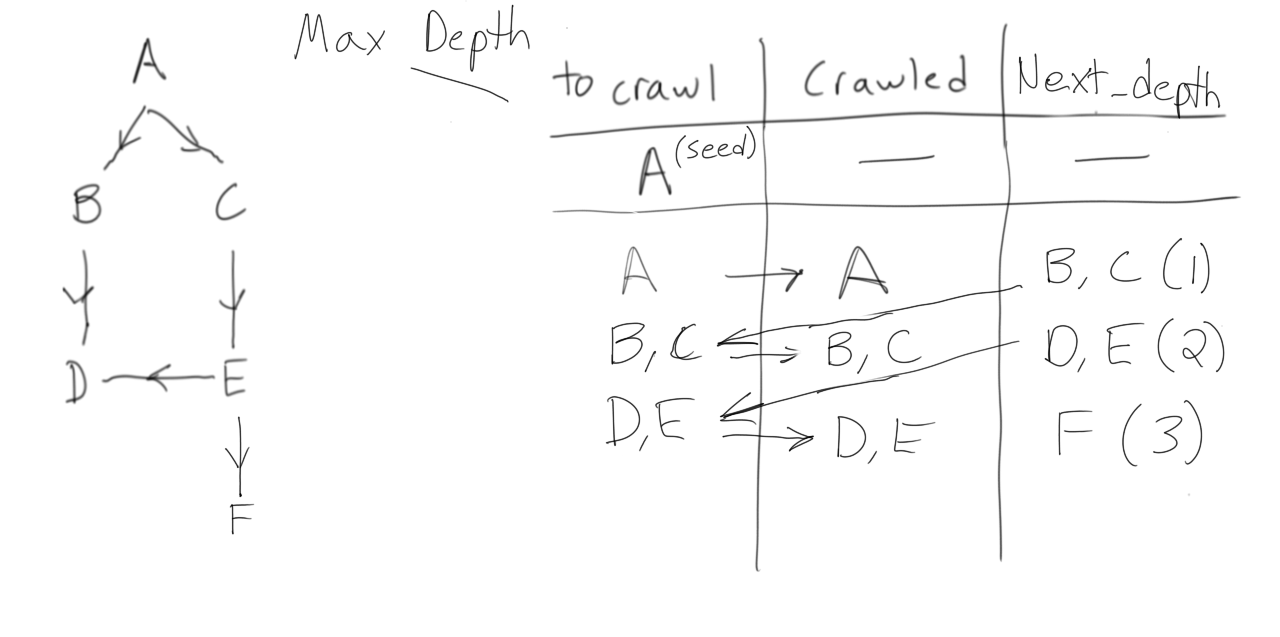 Max Depth
A
B C
D E
F
to crawl Crawled Next_depth
A (seed) — —
A A B, C (1)
B, C B, C D, E (2)
D, E D, E F (3)